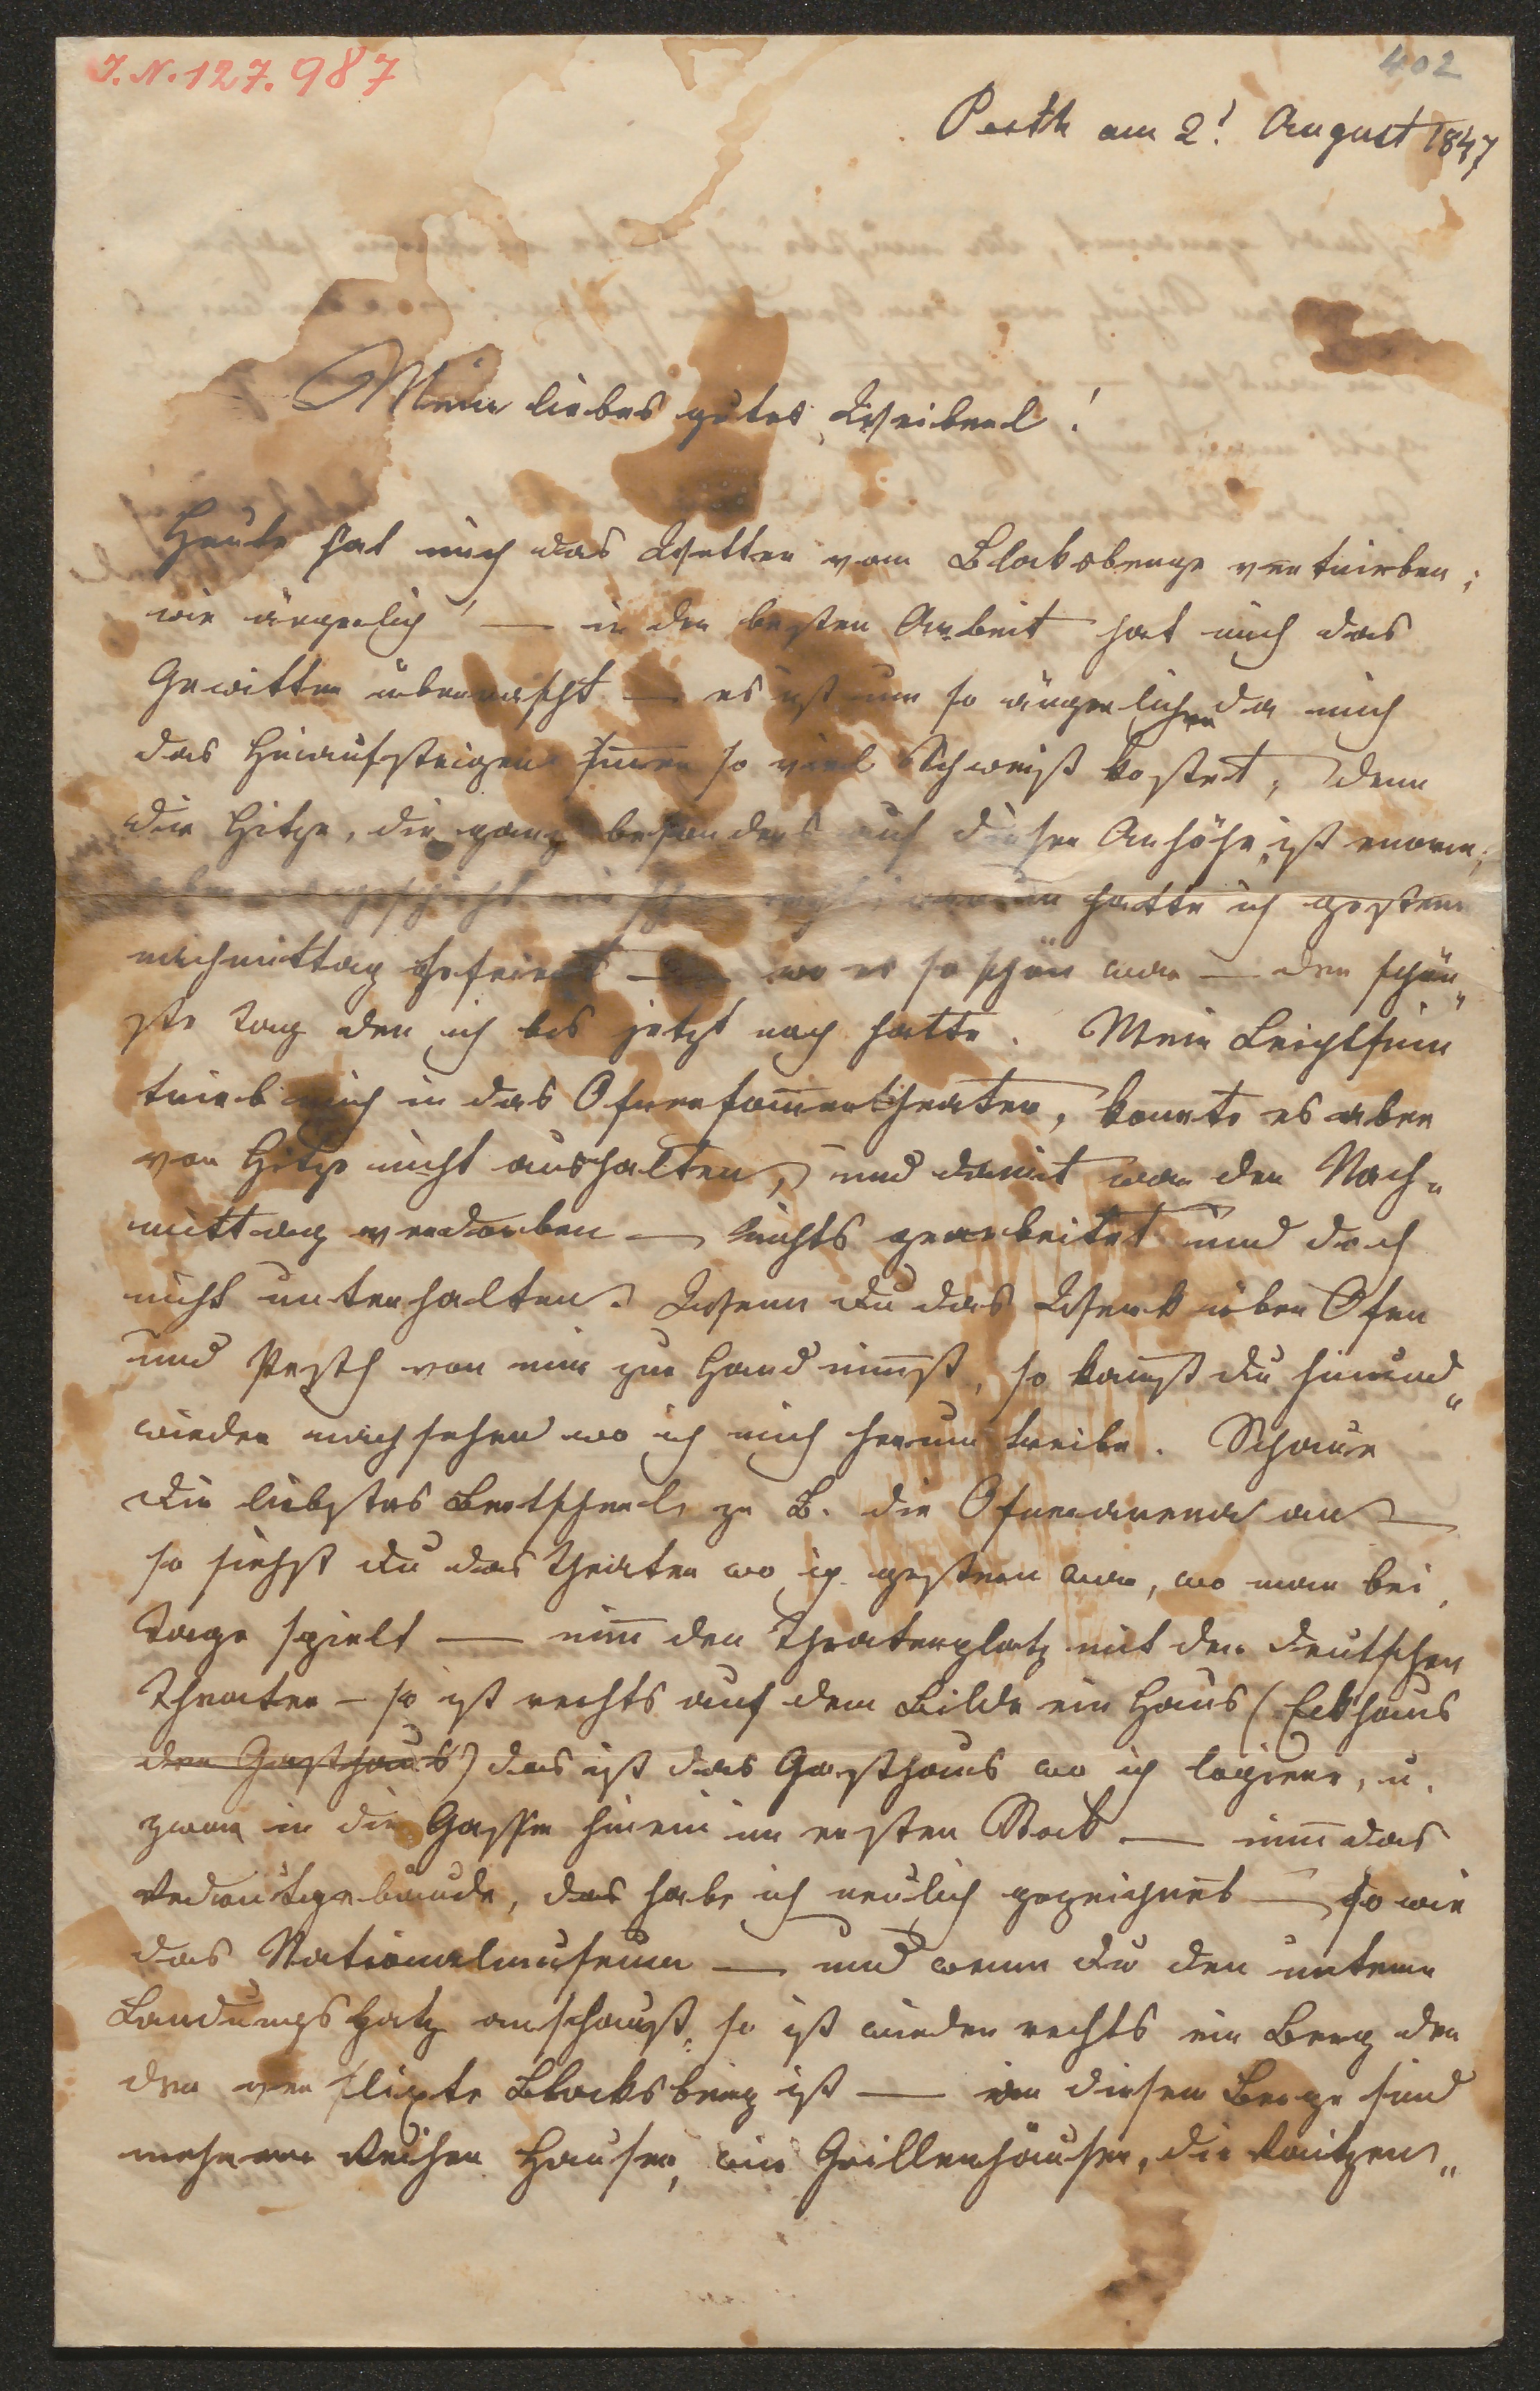 J.N. 127.987
402
Pesth am 2! August 1847
Mein liebes gutes Weiberl!
Heute hat mich das Wetter vom Blocksberge vertrieben;
wie ärgerlich! — in der besten Arbeit hat mich das
Gewitter überrascht — es ist um so ärgerlicher da mich
das Hinaufsteigen immer so viel Schweiß kostet, denn
die Hitze, die ganz besonders auf dieser Anhöhe, ist enorm;
aber geschieht mir schon recht; warum hatte ich gestern
nachmittag gefeiert — wo es so schön war — der schön„
ste Tag den ich bis jetzt noch hatte. Mein Leichtsinn
trieb mich in das Ofnersom̅ertheater, konnte es aber
vor Hitze nicht aushalten, und damit war der Nach„
mittag verdorben — nichts gearbeitet und doch
nicht unterhalten. Wenn du das Werk über Ofen
und Pesth von mir zur Hand nim̅st, so kan̅st du hinund„
wieder nachsehen wo ich mich herum treibe. Schaue
die liebstes Bertscherl z. B. die Ofnerarena an —
so siehst du das Theater wo ich gestern war, wo man bei
Tage spielt — nim̅ den Theaterplatz mit den deutschen
Theater – so ist rechts auf dem Bilde ein Haus (Eckhaus
der Gasthaus) das ist das Gasthaus wo ich logiere, u.
zwar in die Gasse hinein im ersten Stock — nim̅ das
Redoutgebäude, das habe ich neulich gezeichnet — so wie
das Nationalmuseum — und wenn du den untern
Landungsplatz anschaust, so ist wieder rechts ein Berg der
der verflixte Blocksberg ist — an diesem Berge sind
mehrere Reihen Häuser, wie Grillenhäuser, die Raitzen„